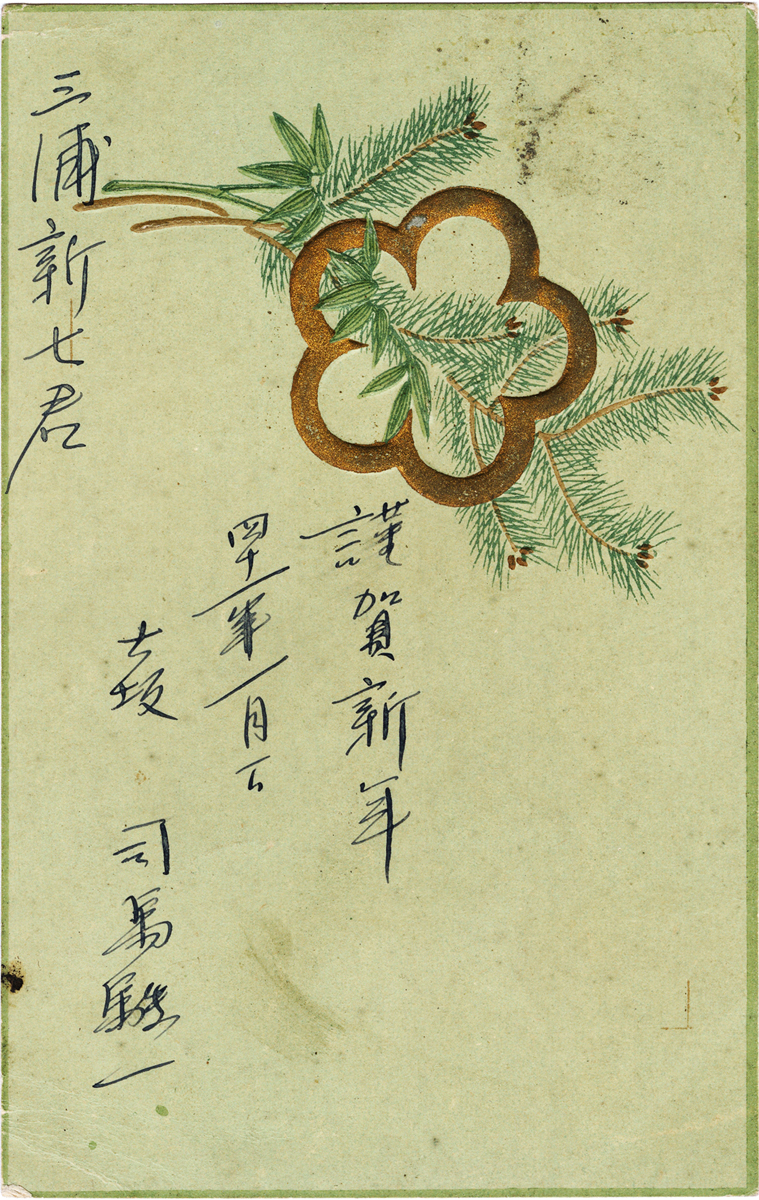 謹賀新年
四十一年一月一日
大坂 司馬駿一
三浦新七君